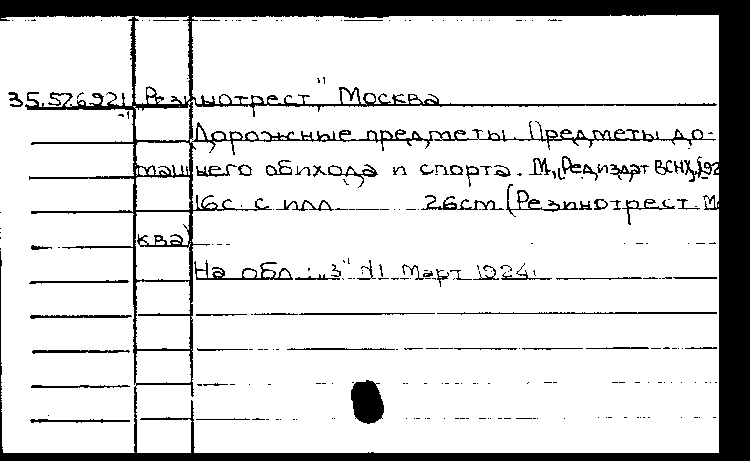 35.526921 „Резинотрест", Москва
Дорожные предметы. Предметы до-
машнего обихода и спорта. М., [Редиздат ВСНХ, 192
16с. с илл. 26cm (Резинотрест. Мо
ква)
На обл.: „3" №1 Март 1924.